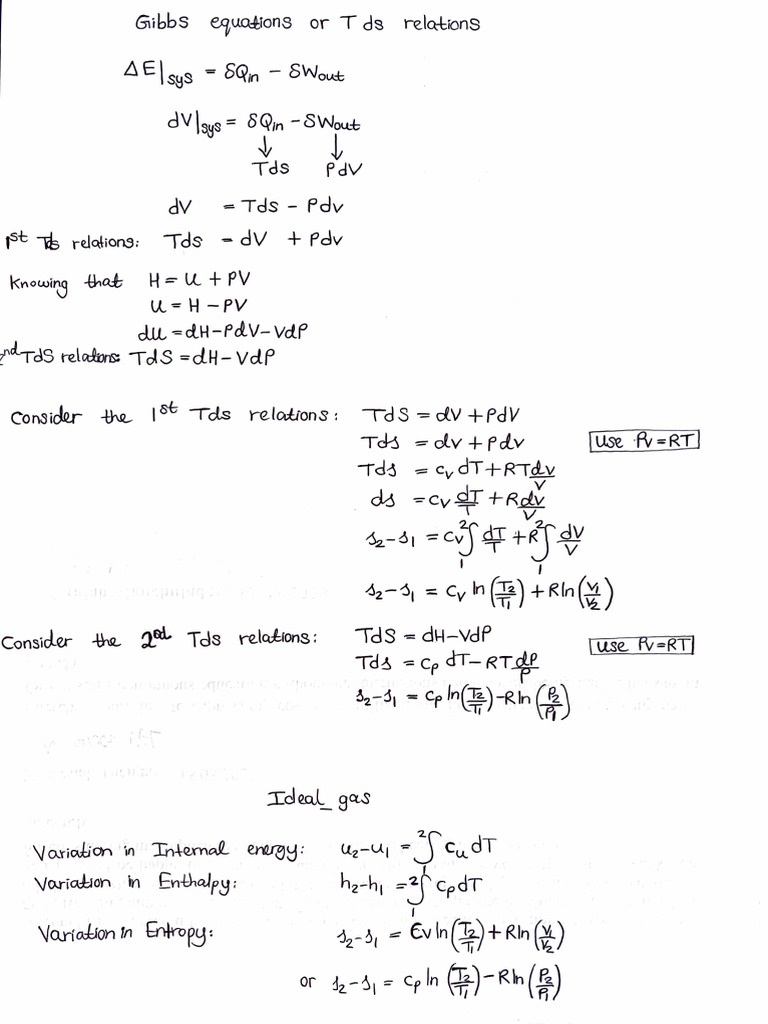 Gibbs equations or Tds relations
ΔE|sys = δQin - δWout
dV|sys = δQin - δWout
↓ ↓
Tds PdV
dV = Tds - Pdv
1st Tds relations: Tds = dV + Pdv
Knowing that H = U + PV
U = H - PV
du = dH - PdV - VdP
2nd TdS relations: TdS = dH - VdP
Consider the 1st Tds relations: TdS = dV + PdV
Tds = dv + pdv use Pv = RT
Tds = cv dT + RT dv/v
ds = cv dT/T + R dv/v
s2-s1 = cv ∫₁² dT/T + R ∫₁² dV/V
s2-s1 = cv ln(T2/T1) + R ln(V1/V2)
Consider the 2nd Tds relations: TdS = dH - VdP use Pv = RT
Tds = cp dT - RT dp/p
s2-s1 = cp ln(T2/T1) - R ln(P2/P1)
Ideal_gas
Variation in Internal energy: u2-u1 = ∫₁² cu dT
Variation in Enthalpy: h2-h1 = ∫₁² cp dT
Variation in Entropy: s2-s1 = Cv ln(T2/T1) + R ln(V1/V2)
or s2-s1 = cp ln(T2/T1) - R ln(P2/P1)